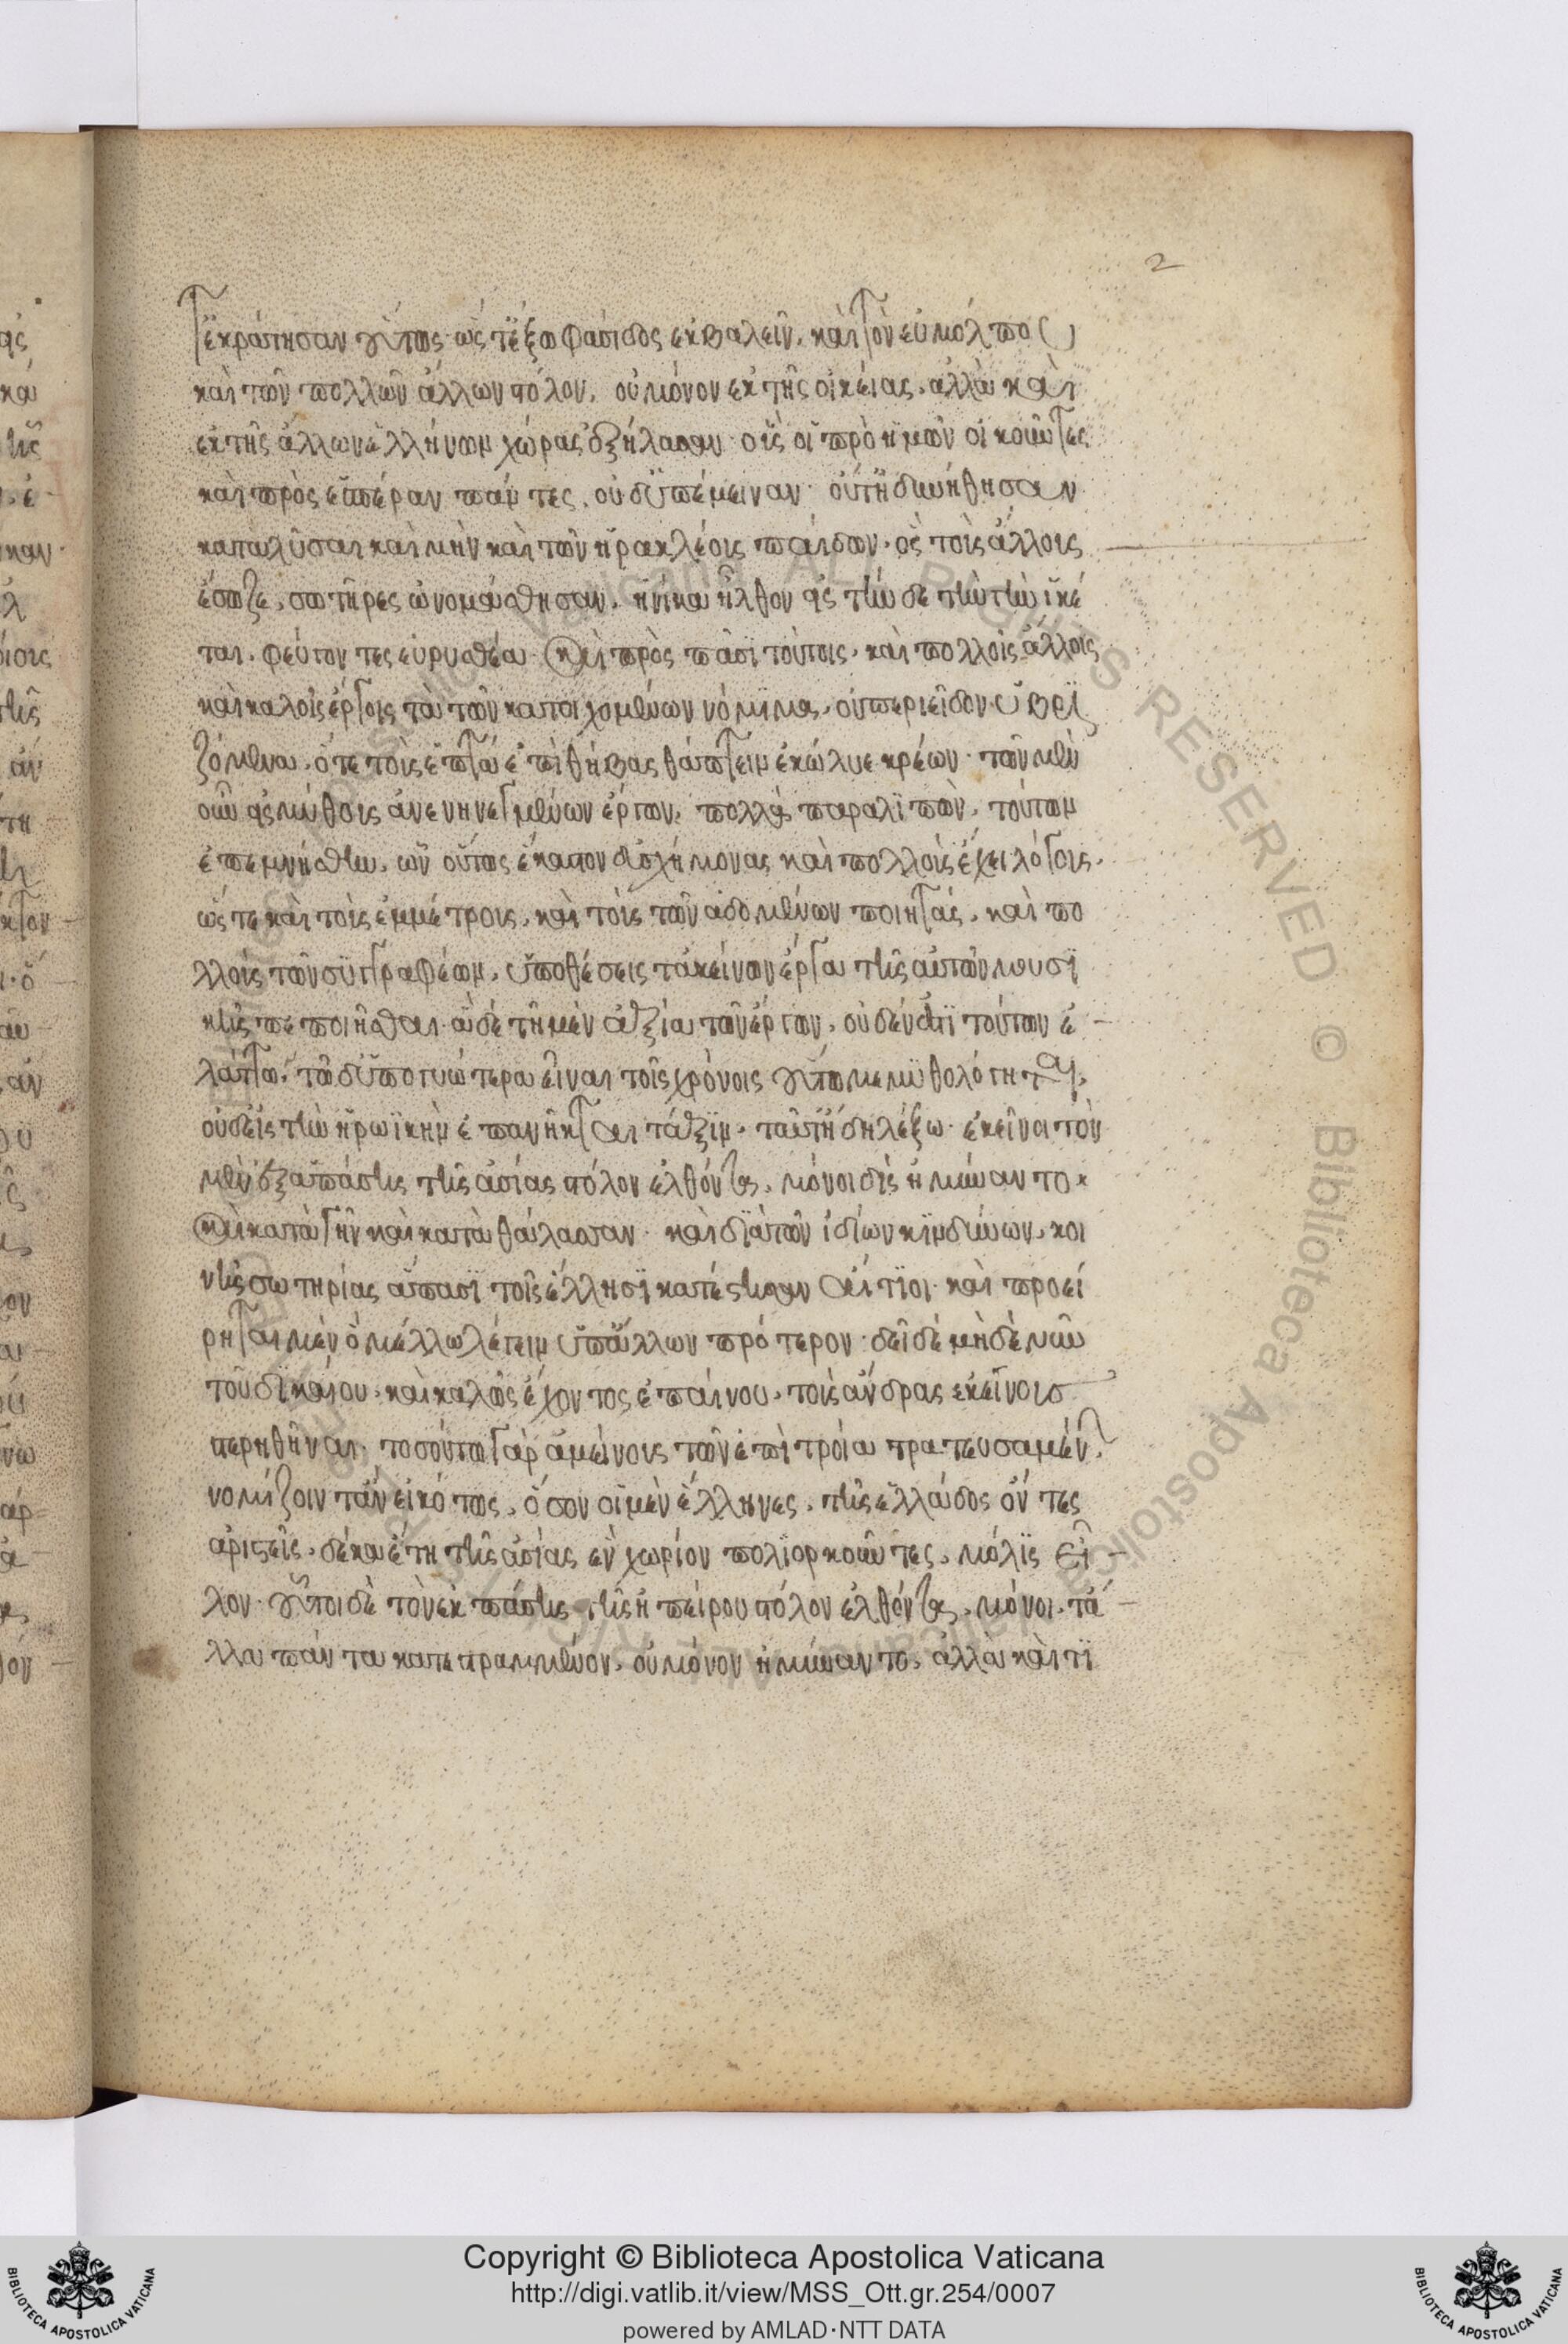 2
ἐκράτησαν οὕτως ὡς τ' ἔξω φάσιδος ἐκβαλεῖν, καὶ τὸν εὐμόλπου
καὶ τῶν πολλῶν ἄλλων στόλον, οὐ μόνον ἐκ τῆς οἰκείας, ἀλλὰ καὶ
ἐκ τῆς ἄλλων ἑλλήνων χώρας ἐξήλασαν· οἷς οἱ πρὸ ἡμῶν οἰκοῦντες
καὶ πρὸς ἑσπέραν πάντες, οὐδ' ὑπέμειναν· οὔτ' ἠδυνήθησαν
καταλῦσαι καὶ μὴν καὶ τῶν ἡρακλέους παίδων· ὃς τοὺς ἄλλους
ἔσωζε, σωτῆρες ὠνομάσθησαν, ἡνίκα ἦλθον εἰς τήνδε τὴν γὴν ἱκέ
ται, φεύγοντες εὐρυσθέα καὶ πρὸς πᾶσι τούτοις, καὶ πολλοῖς ἄλλοις
καὶ καλοῖς ἔργοις τὰ τῶν κατοιχομένων νόμιμα, οὐ περιεῖδον ὑβρι
ζόμενα, ὅτε τοὺς ἑπτὰ ἐπὶ θήβας θάπτειν ἐκώλυε κρέων· τῶν μὲν
οὖν εἰς μύθους ἀνενηνεγμένων ἔργων, πολλὰ παραλιπὼν, τούτων
ἐπεμνήσθην, ὧν οὕτως ἕκαστον εὐσχήμονας καὶ πολλοὺς ἔχει λόγους,
ὥστε καὶ τοὺς ἐμμέτροις, καὶ τοὺς τῶν ἀδομένων ποιητάς, καὶ πο
λλοὺς τῶν συγγραφέων, ὑποθέσεις τἀκείνων ἔργα τῆς αὐτῶν μουσι
κῆς πεποιῆσθαι· ἃ δὲ τῆ μὲν ἀξία τῶν ἔργων, οὐδέν ἐστι τούτων ἐ
λάττω, τῶ δ' ὑπογυιότερα εἶναι τοῖς χρόνοις οὔπω μεμυθολόγηται,
οὐδεἰς τὴν ἡρωϊκὴν ἐπανῆκται τάξιν, ταῦτ' ἤδη λέξω· ἐκεῖνοι τὸν
μὲν ἐξ ἁπάσης τῆς ἀσίας στόλον ἐλθόντας, μόνοι δὶς ἠμύναντο
καὶ κατὰ γῆν καὶ κατὰ θάλασσαν· καὶ διὰ τῶν ἰδίων κινδύνων, κοι
νῆς σωτηρίας ἅπασι τοῖς ἕλλησι κατέστησαν αἴτιοι· καὶ προεί
ρηται μὲν ὃ μέλλω λέγειν ὑπ' ἄλλων πρότερον· δεῖ δὲ μὴδὲ νῦν
τοῦ δικαίου, καὶ καλῶς ἔχοντος ἐπαίνου, τοὺς ἄνδρας ἐκείνους
περηθῆναι· τοσούτω γὰρ ἀμείνους τῶν ἐπὶ τροία στρατευσαμέν
νομίζοιντ' ἂν εἰκότως, ὅσον οἱ μὲν ἕλληνες, τῆς ἑλλάδος ὄντες
ἀριστεῖς, δέκα ἔτη τῆς ἀσίας ἓν χωρίον πολιορκοῦντες, μόλις εἷ
λον· οὗτοι δὲ τὸν ἐκ πάσης τῆς ἠπείρου στόλον ἐλθόντας, μόνοι, τἄ
λλα πάντα κατεστραμμένον, οὐ μόνον ἠμύναντο, ἀλλὰ καὶ τι
Copyright © Biblioteca Apostolica Vaticana
http://digi.vatlib.it/view/MSS_Ott.gr.254/0007
powered by AMLAD·NTT DATA